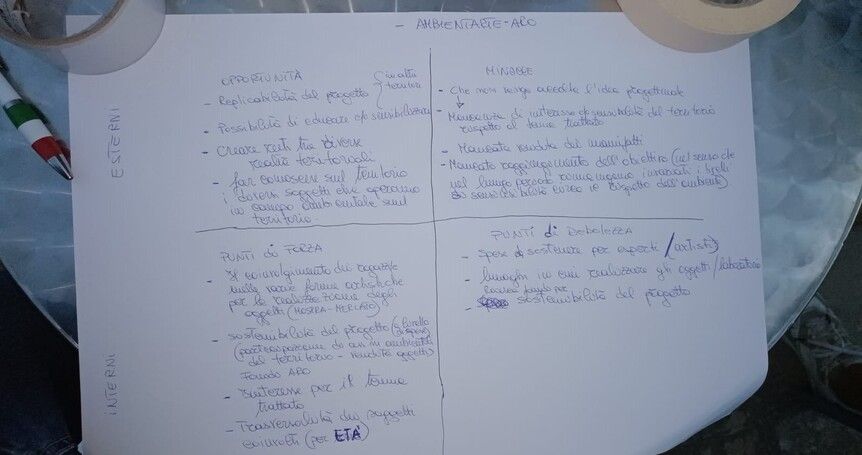 - AMBIENTARTE - ARO
ESTERNI
OPPORTUNITÀ
- Replicabilità del progetto (in altri territori
- Possibilità di educare e/o sensibilizzare
- Creare reti tra diverse
realtà territoriali
- far conoscere sul territorio
i diversi soggetti che operano
in campo ambientale sul
territorio.
MINACCE
- Che non venga accolta l'idea progettuale
- Mancanza di interesse e/o sensibilità del territorio
rispetto al tema trattato
- Mancata vendita dei manufatti
- Mancato raggiungimento dell'obiettivo (nel senso che
nel lungo periodo rimangono invariati i livelli
di sensibilità circa il rispetto dell'ambiente).
INTERNI
PUNTI di FORZA
- Il coinvolgimento dei ragazzi
nelle varie forme artistiche
per la realizzazione degli
oggetti (MOSTRA-MERCATO)
- sostenibilità del progetto (a livello di spese)
(partecipazione di enti ambientali
del territorio - vendita oggetti)
Fondo ARO
- Interesse per il tema
trattato
- Trasversalità dei soggetti
coinvolti (per ETÀ)
PUNTI di DEBOLEZZA
- spese da sostenere per esperti / artisti)
- luoghi in cui realizzare gli oggetti / laboratorio
- sostenibilità del progetto